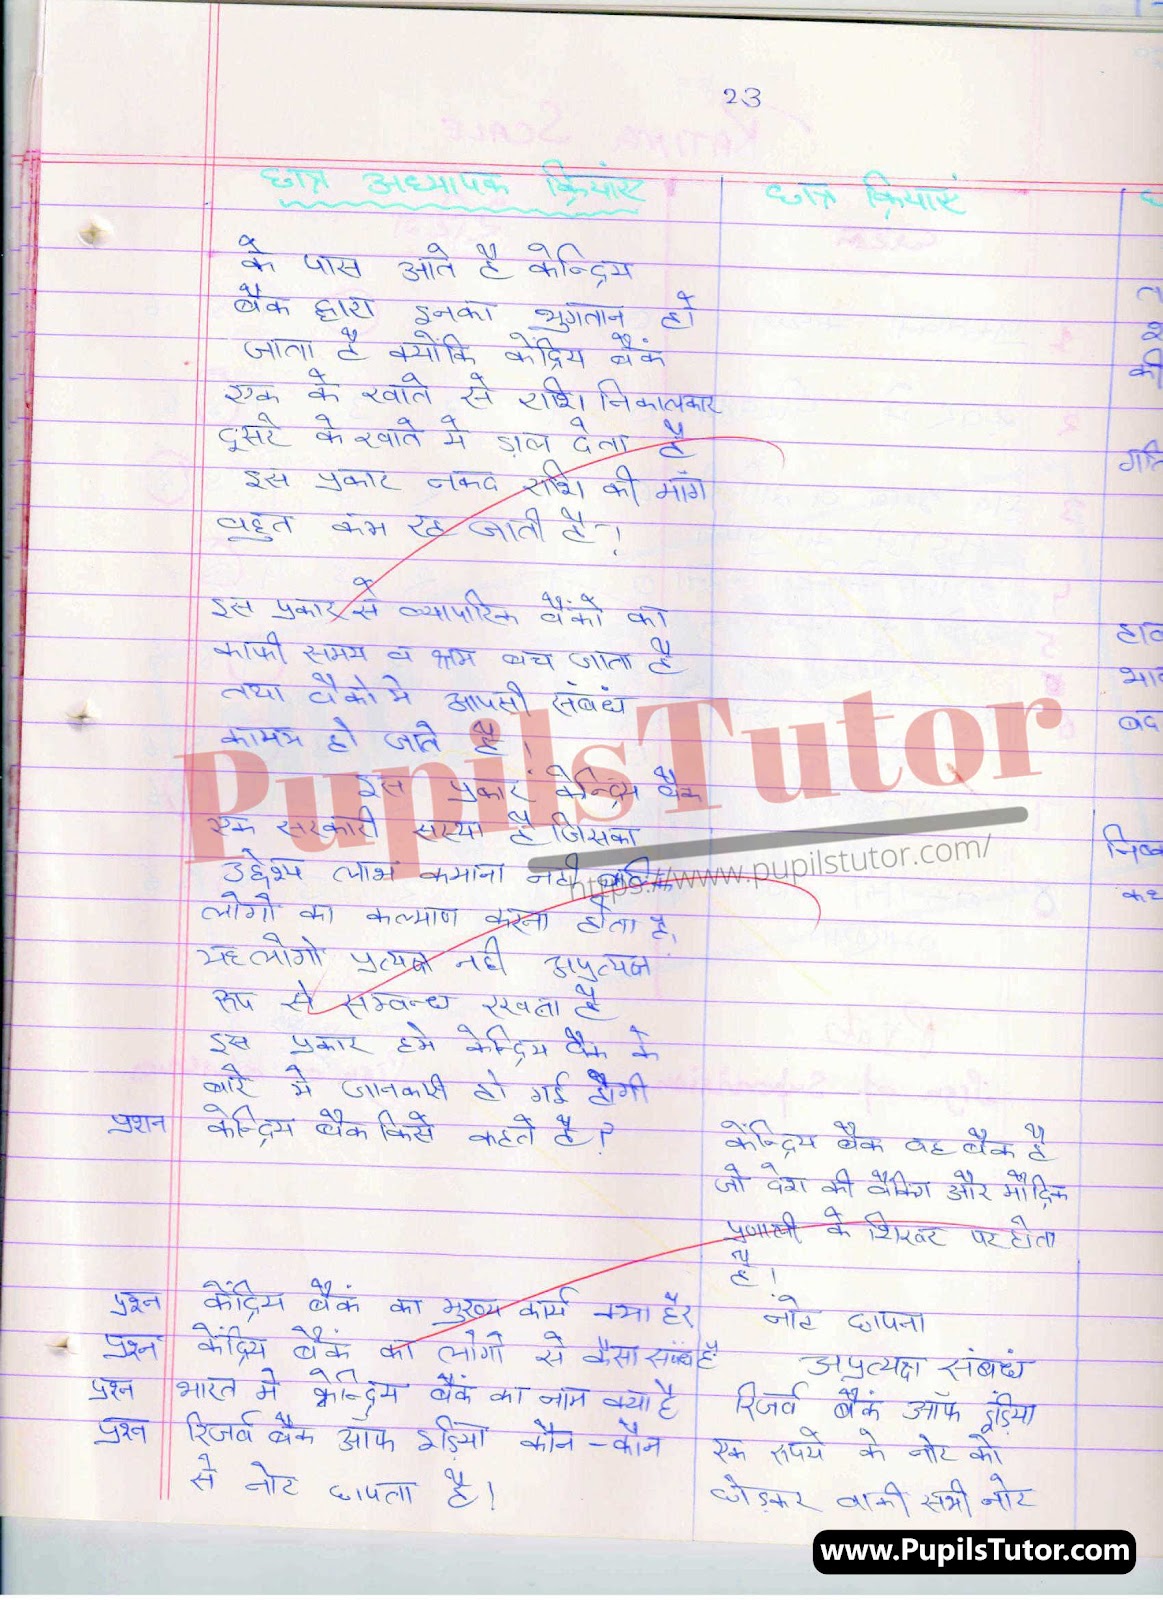 23
छात्र अध्यापक क्रियाएं
छात्र क्रियाएं
के पास आते है केन्द्रिय
बैंक द्वारा इनका भुगतान हो
जाता है क्योंकि केंद्रिय बैंक
एक के खाते से राशि निकालकार
दूसरे के खाते मे ड़ाल देता है
इस प्रकार नकद राशि की माँग
बहुत कम रह जाती है।
इस प्रकार से व्यापारिक बैंको का
काफी समय व श्रम बच जाता है
तथा बैंको मे आपसी संबंध
हो जाते है।
इस प्रकार केन्द्रिय बैंक
एक सरकारी सस्था है जिसका
उद्देश्य लाभ कमाना नही बल्कि
लोगों का कल्याण करना होता है,
यह लोगो प्रत्यक्ष नही अप्रत्यक्ष
रूप से सम्बन्ध रखता है
इस प्रकार हमे केन्द्रिय बैंक के
बारे मे जानकारी हो गई होगी
प्रशन केन्द्रिय बैंक किसे कहते है?
केन्द्रिय बैंक वह बैंक है
जो देश की बैंकिंग और मौद्रिक
प्रणाली के शिखर पर होता
है।
प्रश्न केंद्रिय बैंक का मुख्य कार्य क्या है?
नोट छापना
प्रश्न केंद्रिय बैंक का लोगो से कैसा संबंध है
अप्रत्यक्ष संबंध
प्रश्न भारत मे केन्द्रिय बैंक का नाम क्या है
रिजर्व बैंक ऑफ इंडिया
प्रश्न रिजर्व बैंक ऑफ इंडिया कौन-कौन
से नोट छापता है।
एक रूपये के नोट को
छोड़कर बाकी सभी नोट
PupilsTutor
https://www.pupilstutor.com/
www.PupilsTutor.com